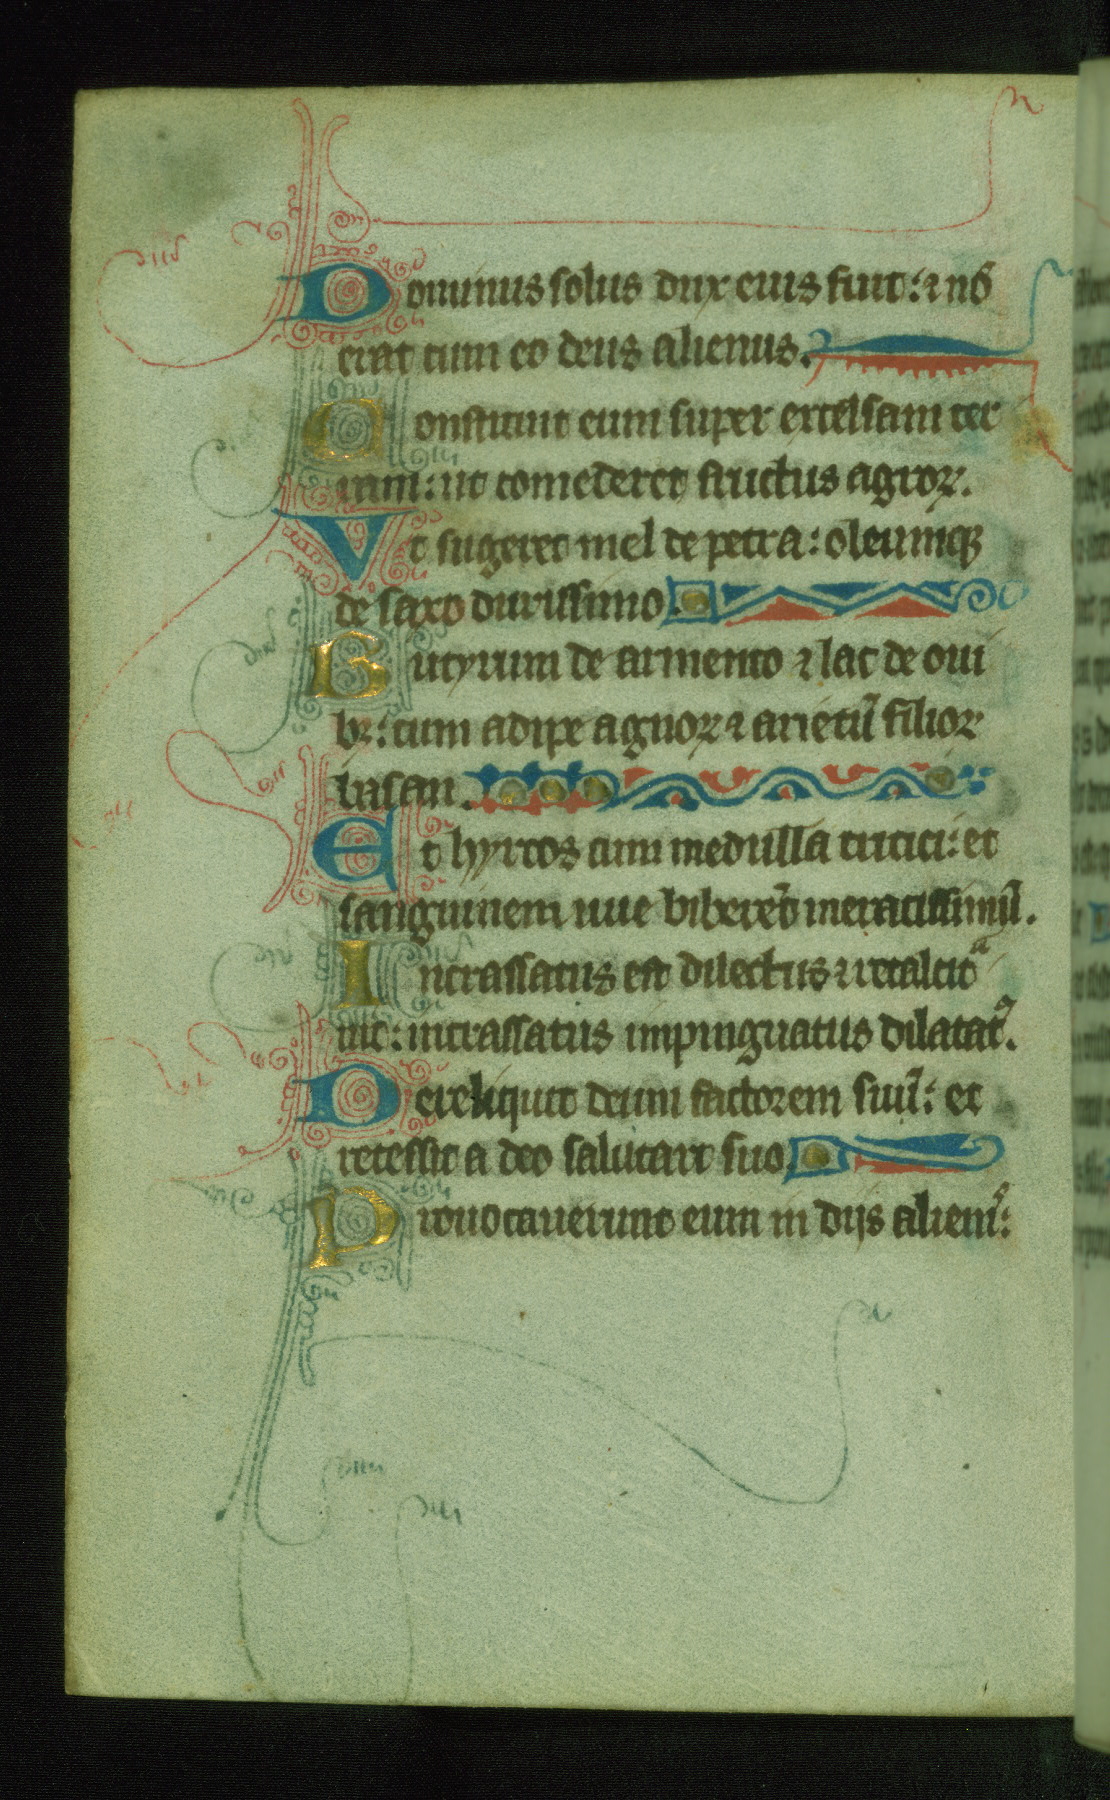 Dominus solus dux eius fuit: ⁊ nō
erat cum eo deus alienus.
Constituit eum super excelsam ter
ram: ut comederet fructus agroꝝ.
Vt sugeret mel de petra: oleumqꝫ
de saxo durissimo.
Butyrum de armento ⁊ lac de oui
bꝫ: cum adipe agnoꝝ ⁊ arietū filioꝝ
basan.
Et hyrcos cum medulla tritici: et
sanguinem uue biberēt meracissimū.
Incrassatus est dilectus ⁊ recalcitᵃ
uit: incrassatus impinguatus dilatatꝰ.
Dereliquit deum factorem suū: et
recessit a deo salutari suo.
Prouocauerunt eum in dijs alienis: